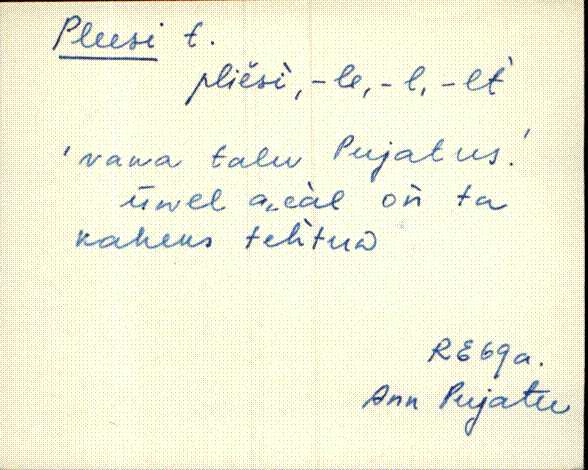 Pleesi t.
pliẽsì, -le, -l, -lt
'vana talu Pujatus.'
ühel a,eàl on ta
kaheks tehtuD
RE 69a.
Ann Pujatu